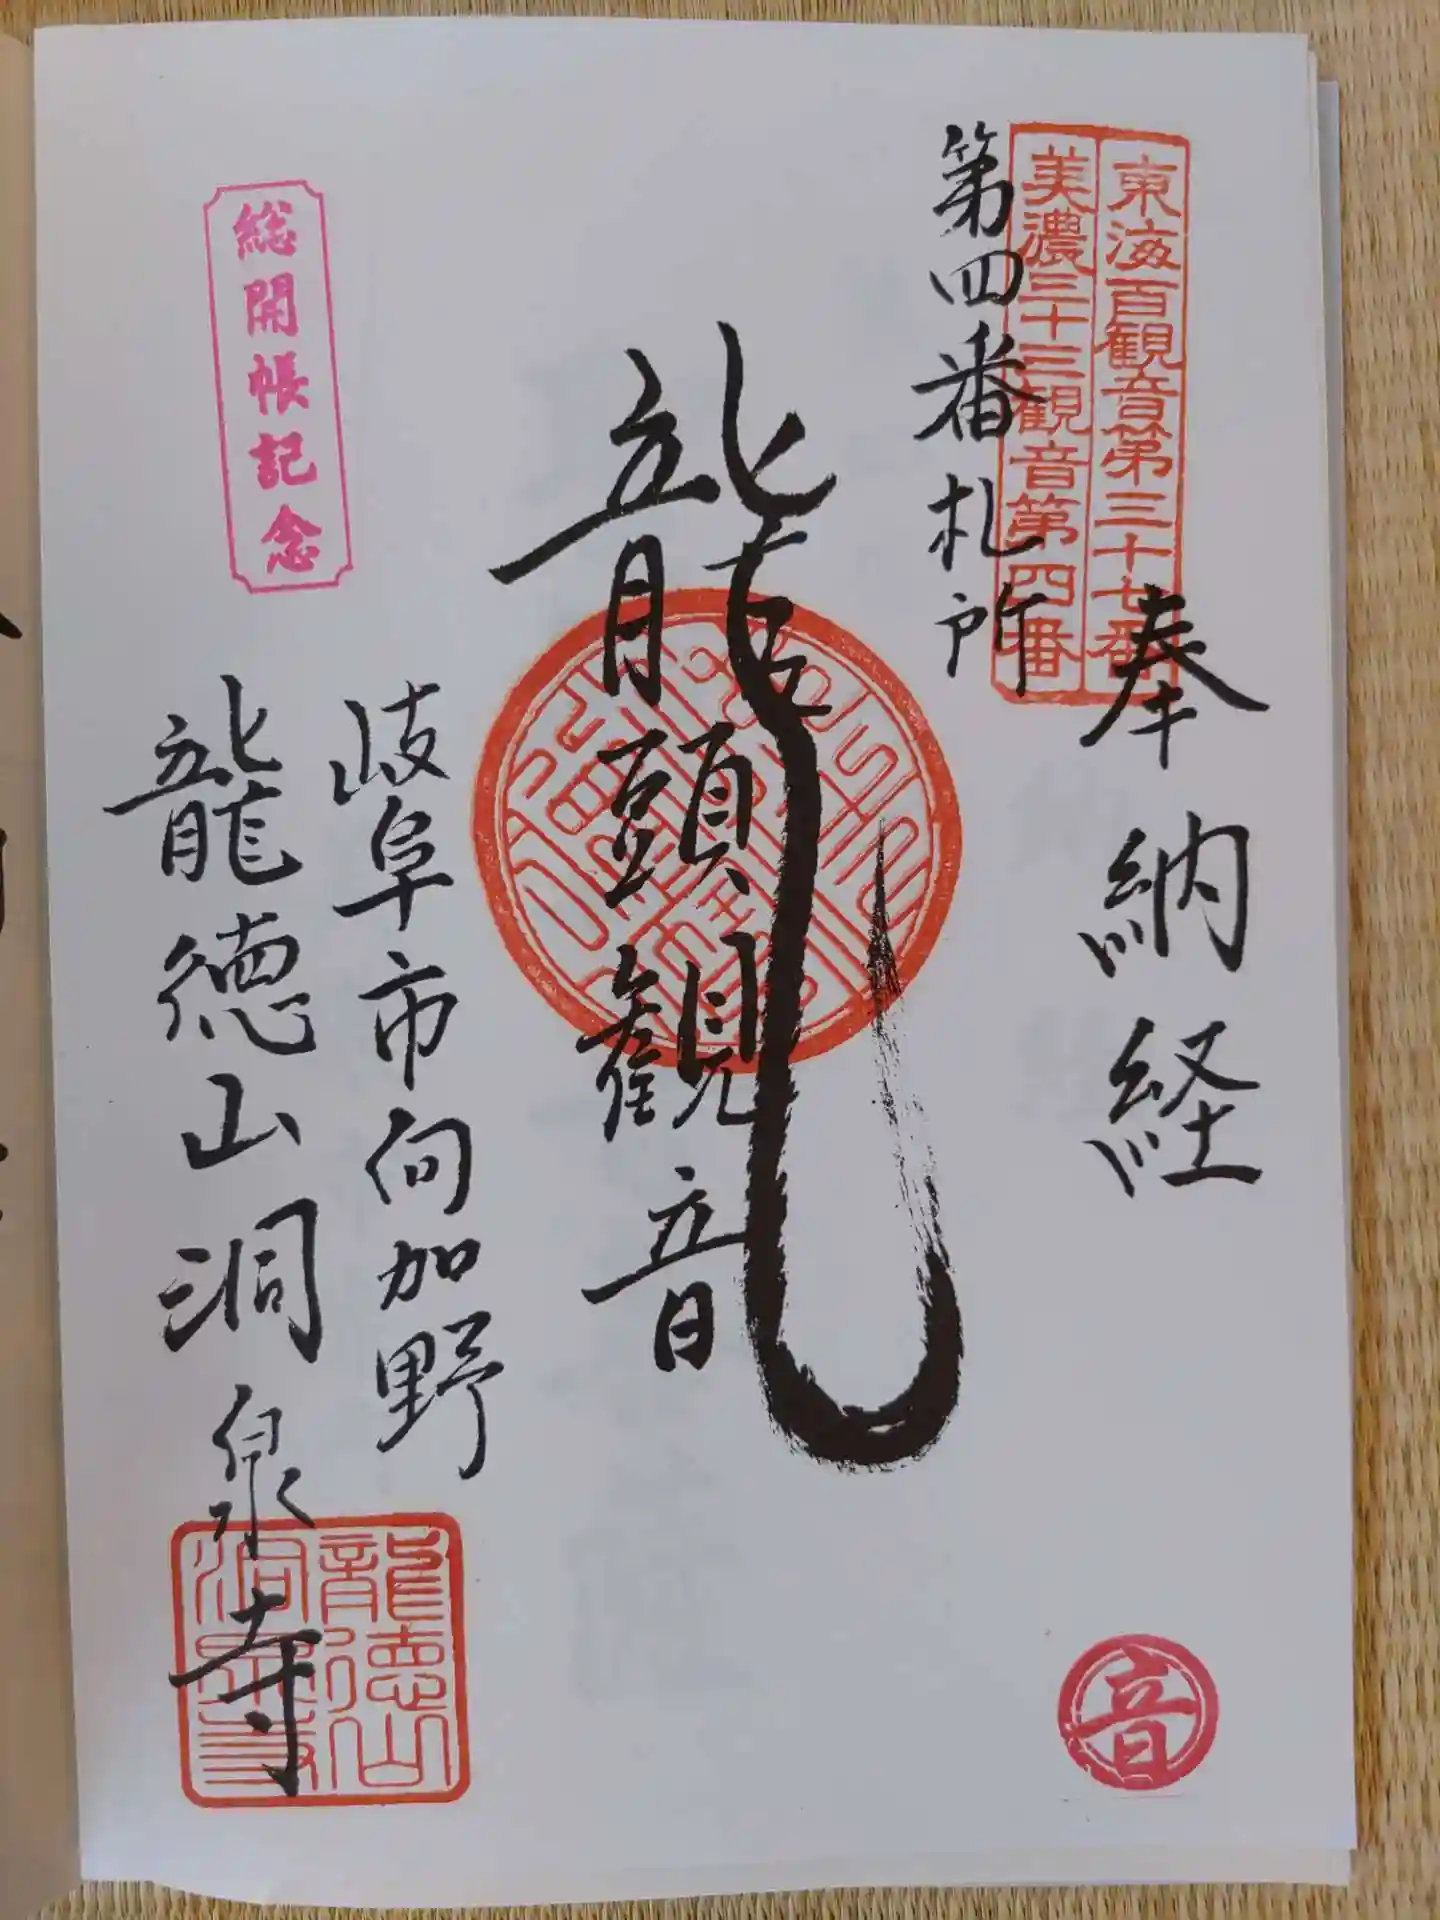 東海百観音第三十七番
美濃三十三観音第四番
奉納経
第四番札所
龍頭観音
岐阜市向加野
龍徳山洞泉寺
総開帳記念
龍徳山
洞泉寺
音